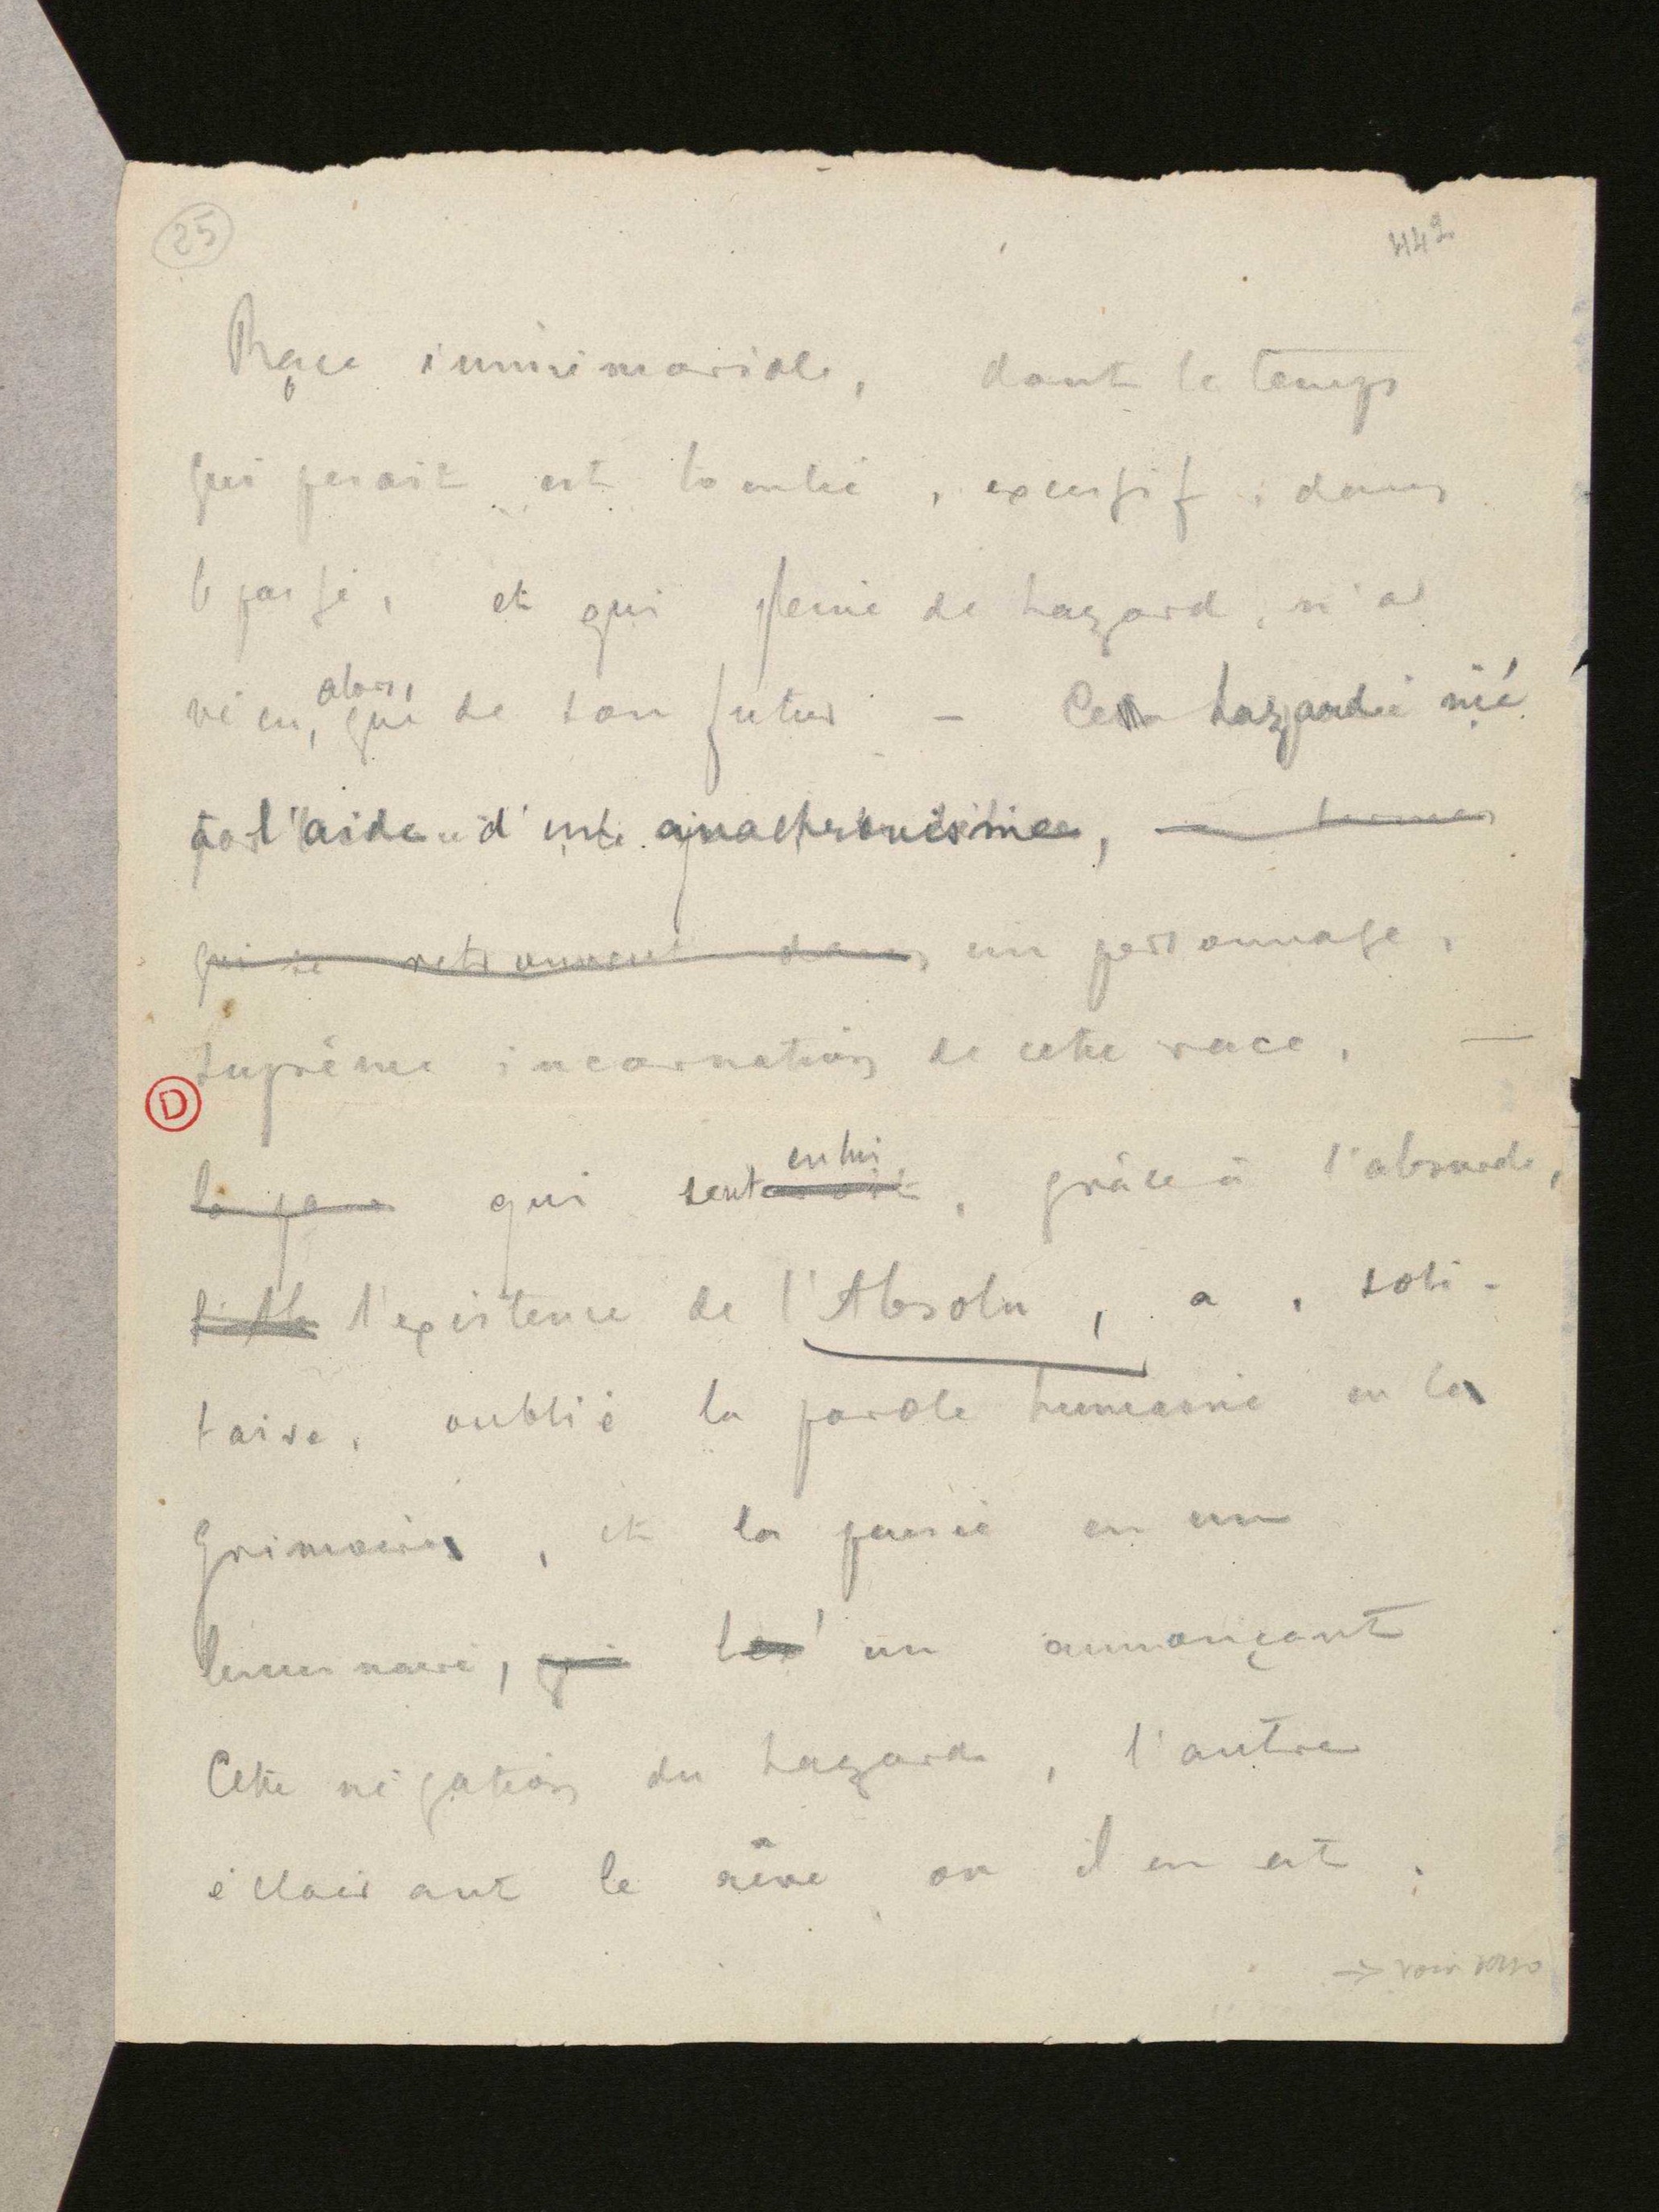 25
442
Race immémoriale, dont le temps
qui pesait est tombé, excessif, dans
le passé, et qui pleine de hazard, n'a
vécu, alors, que de son futur — Ce hazard nié
à l'aide d'un anachronisme,
qui se retrouvent dans un personnage,
suprême incarnation de cette race, —
D
qui sent en lui, grâce à l'absurde,
l'existence de l'Absolu, a, soli-
taire, oublié la parole humaine en le
grimoire, et la pensée en un
luminaire, qui l'un annonçant
Cette négation du hazard, l'autre
éclairant le rêve où il en est.
→ voir verso